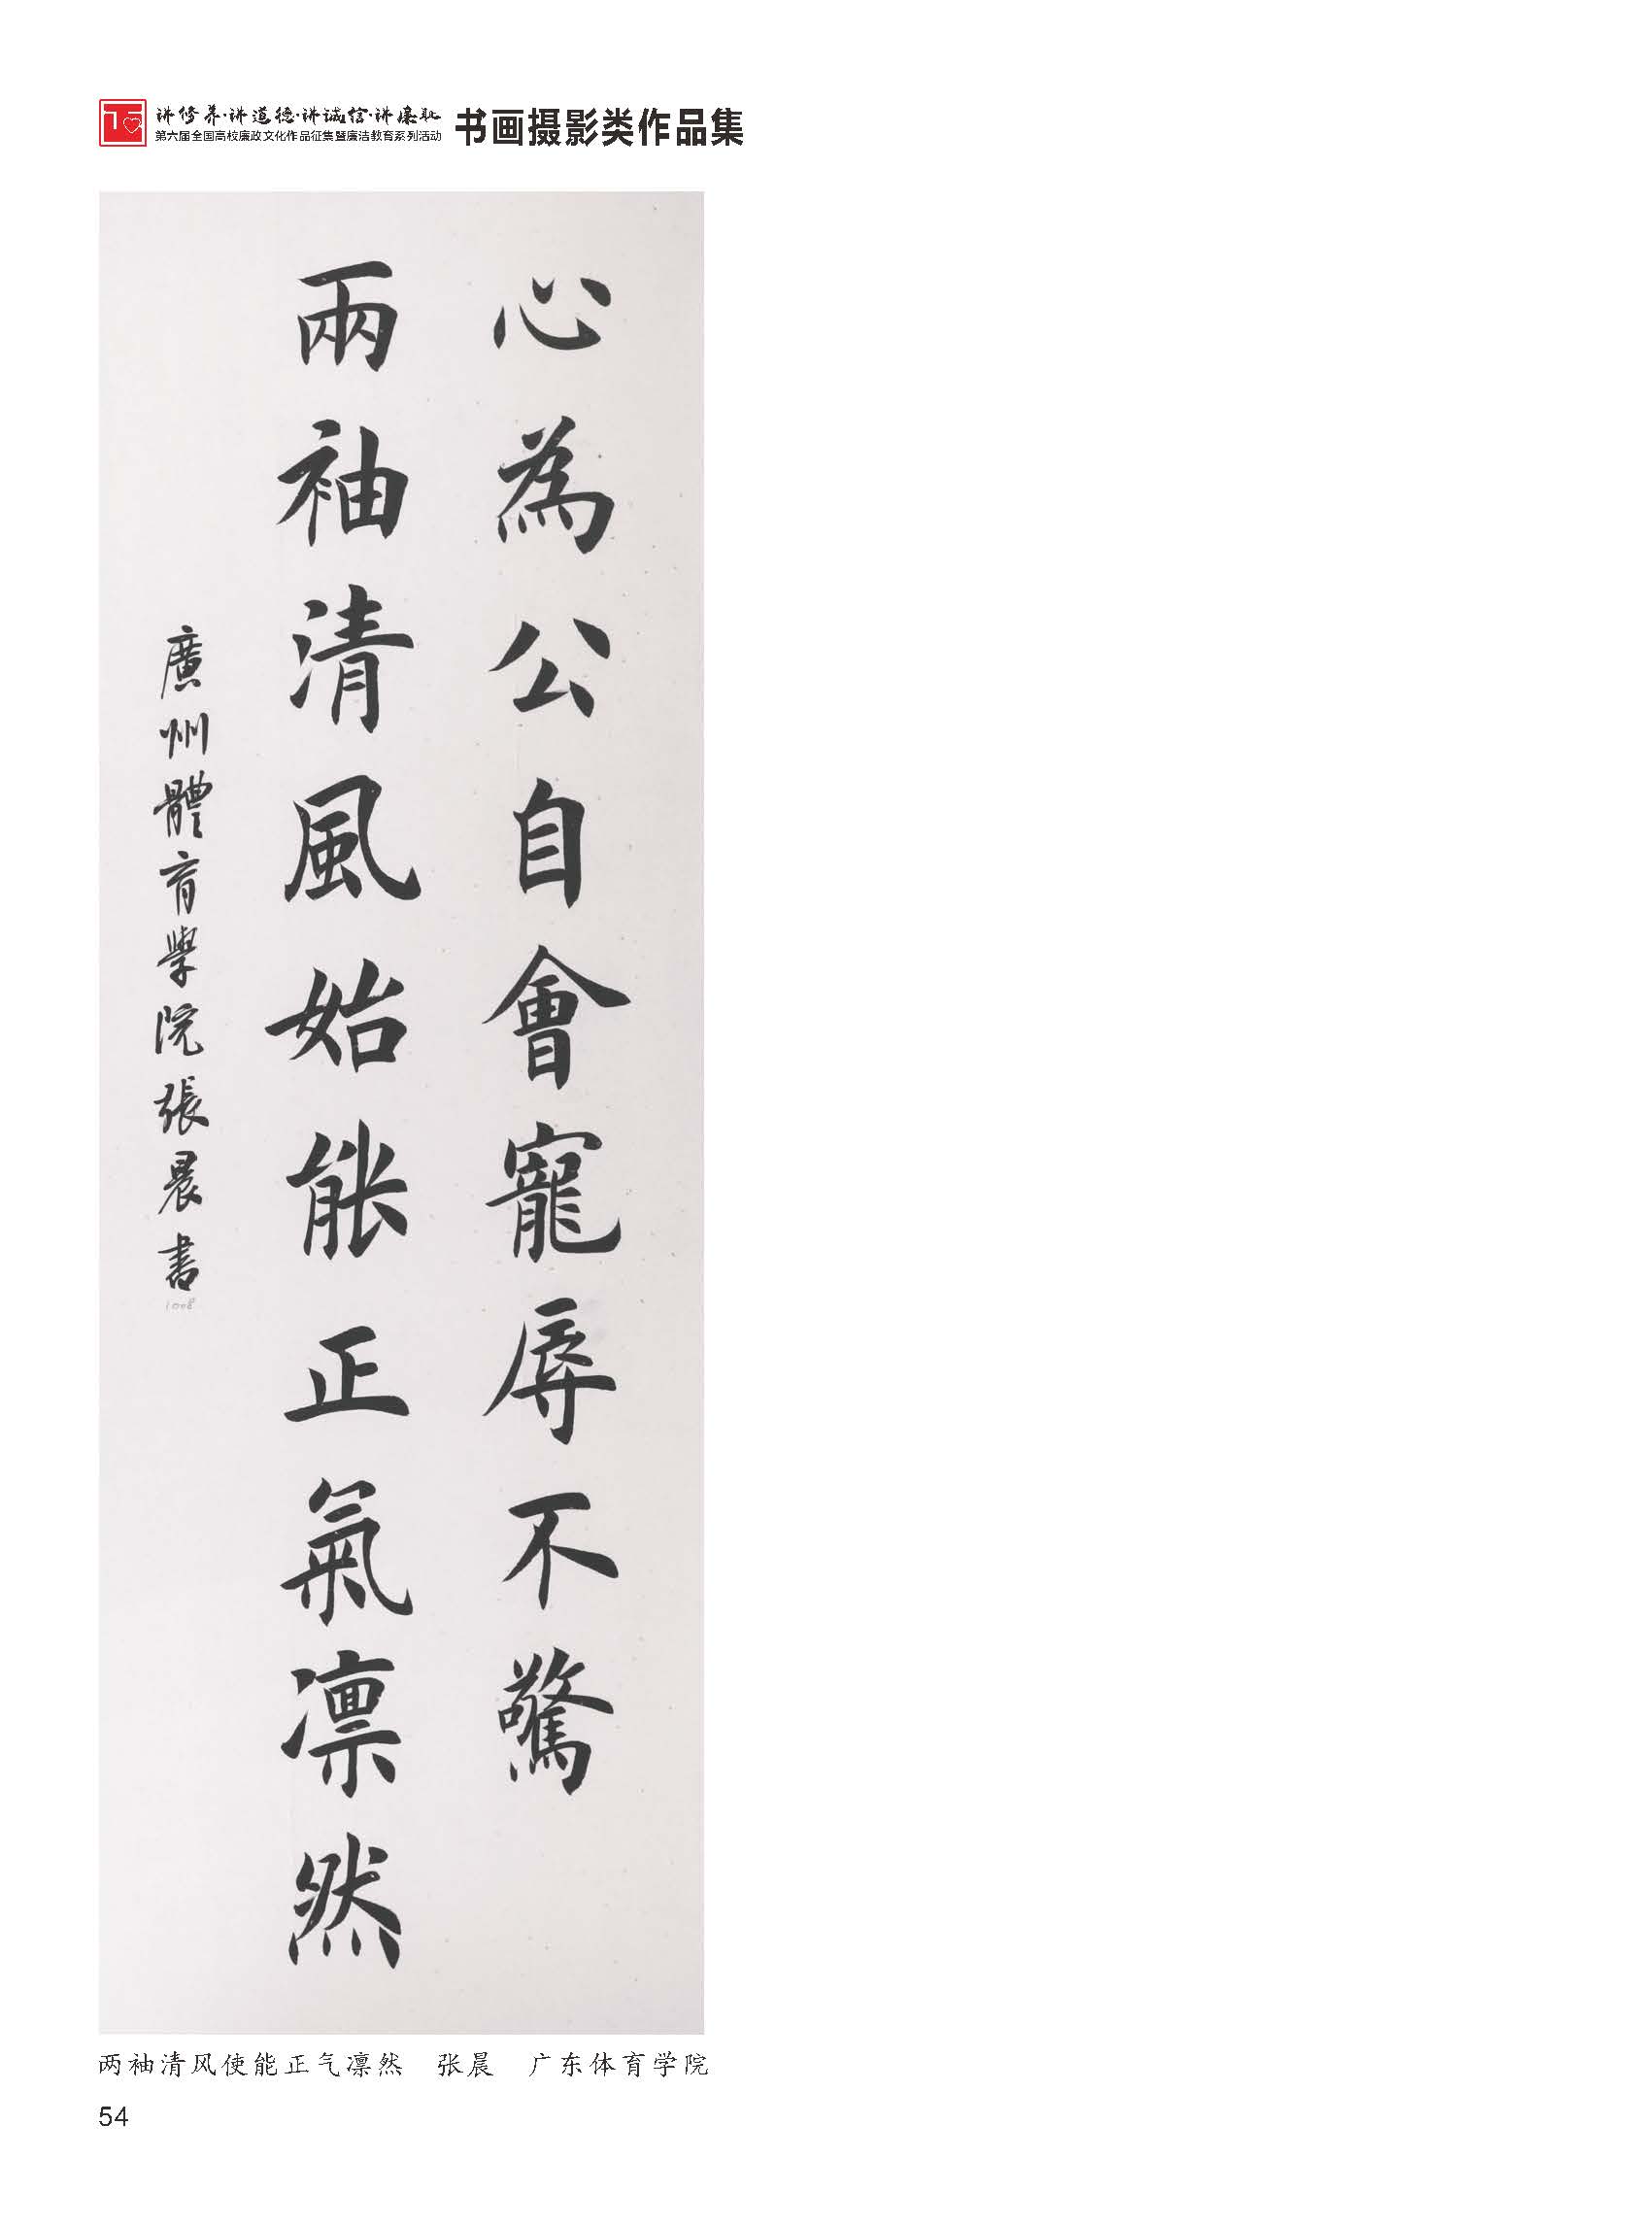 讲修养·讲道德·讲诚信·讲廉耻
第六届全国高校廉政文化作品征集暨廉洁教育系列活动
书画摄影类作品集
心為公自會寵辱不驚
兩袖清風始能正氣凛然
廣州體育學院張晨書
1008
两袖清风使能正气凛然 张晨 广东体育学院
54